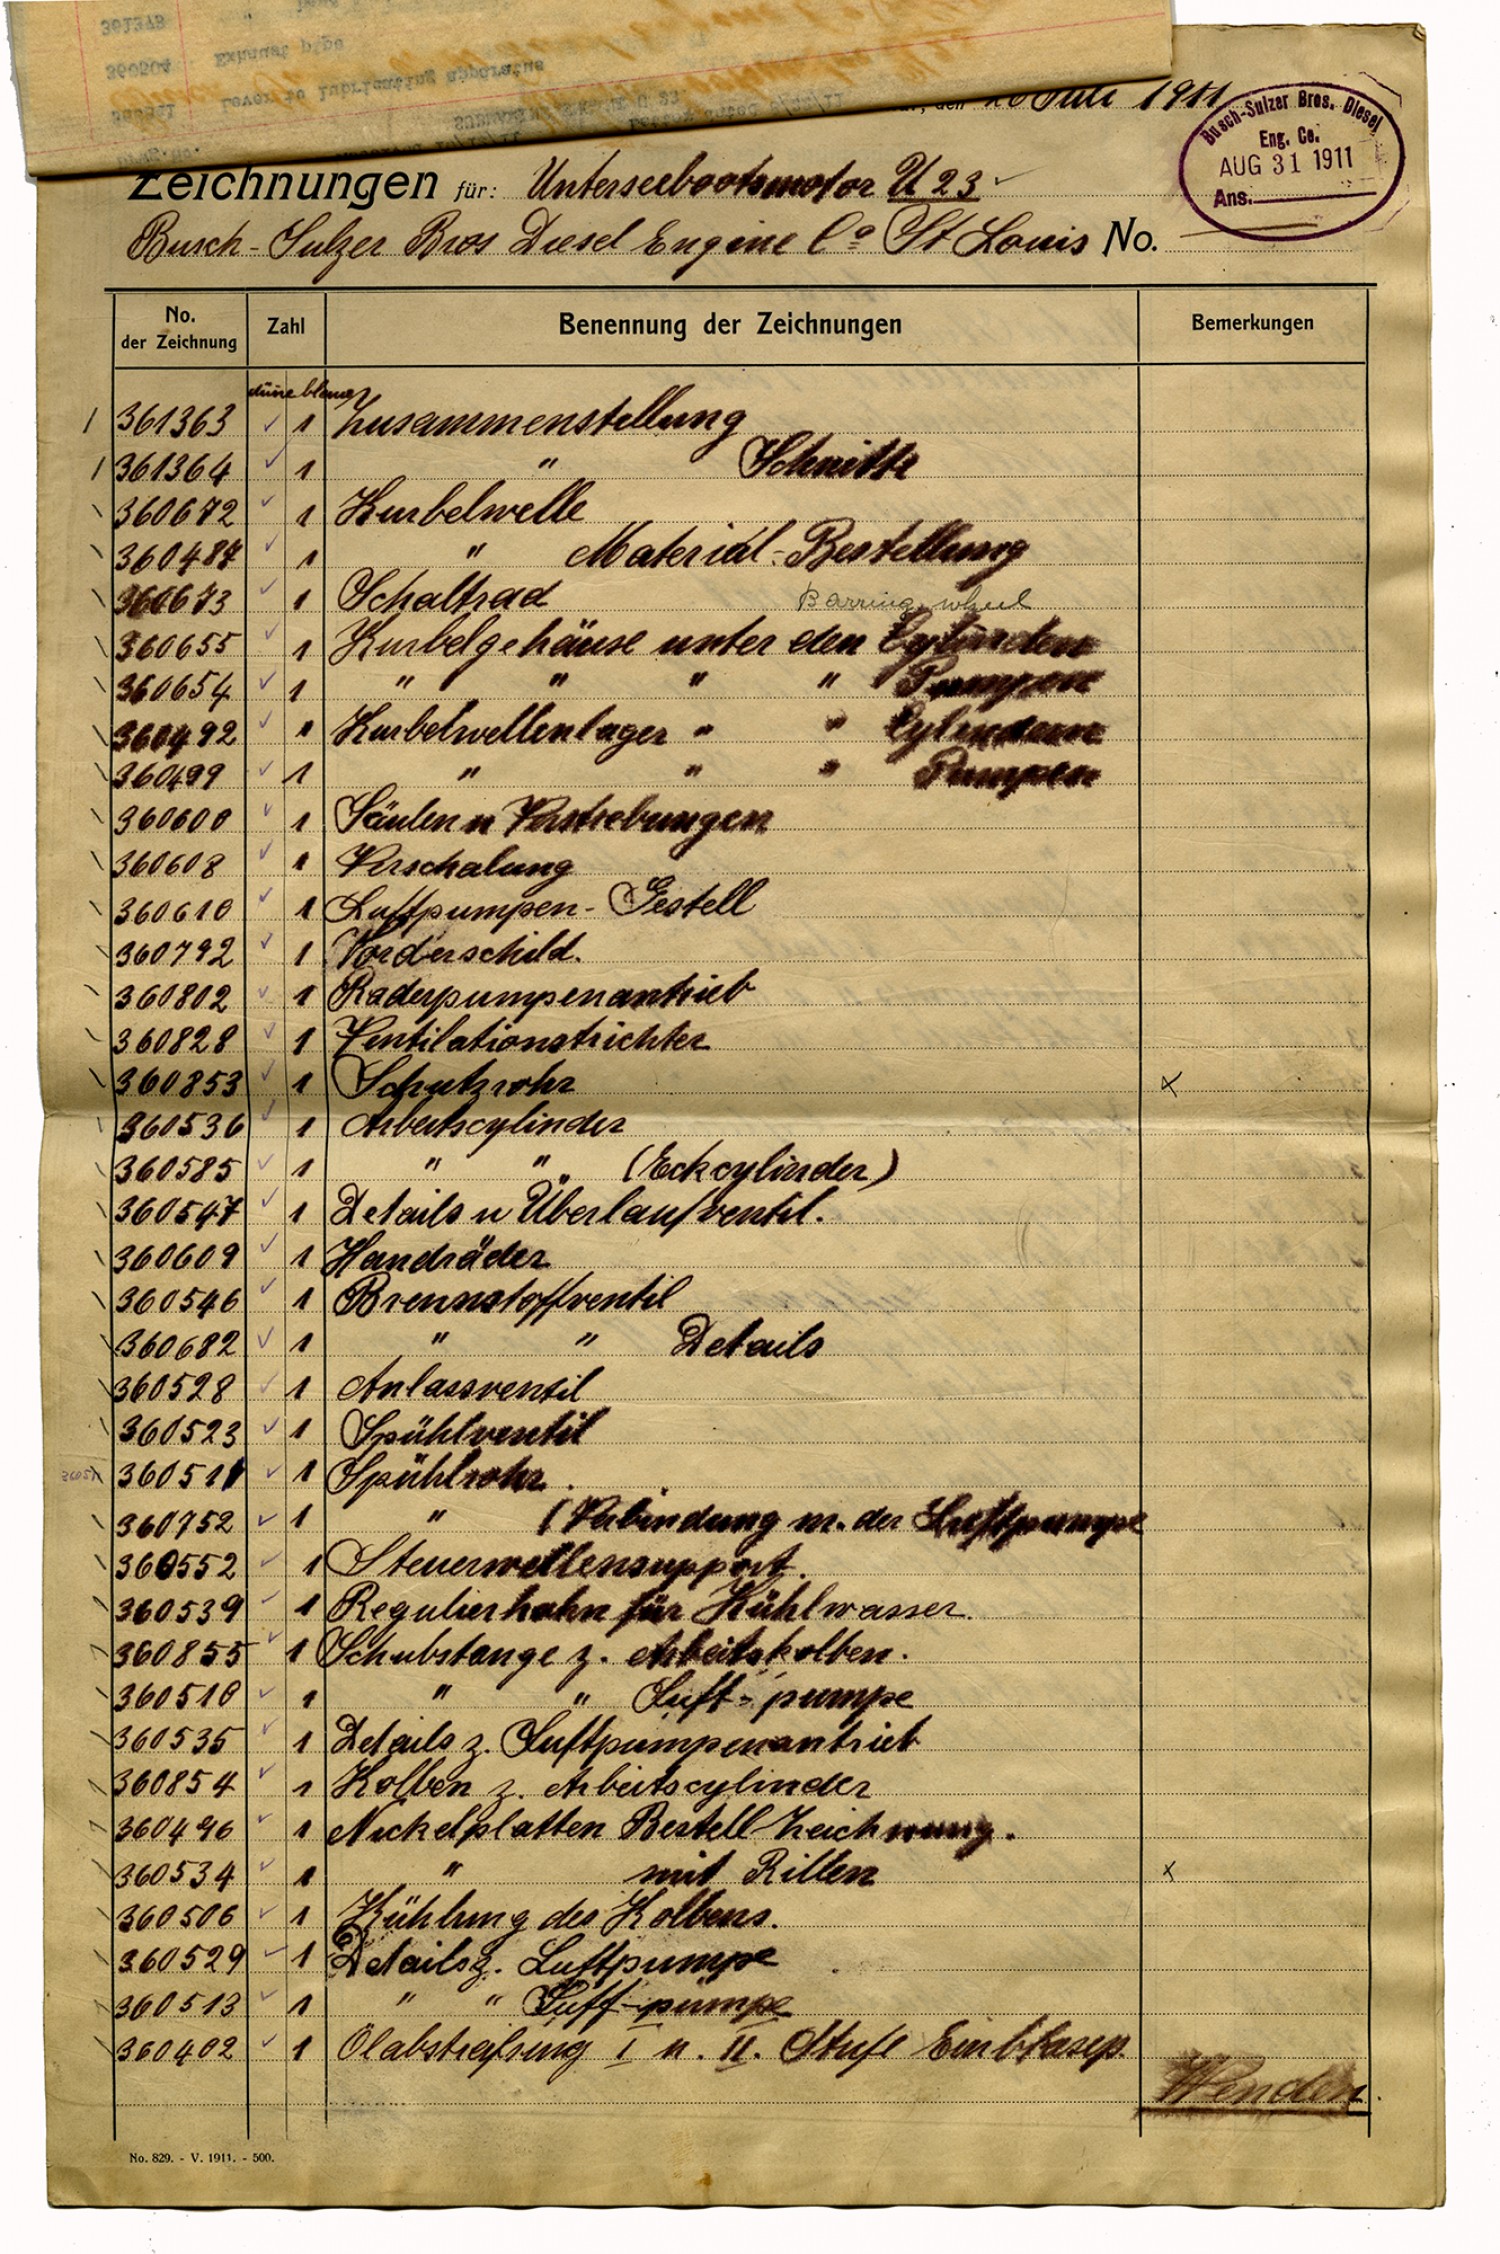 361373
360504 Exhaust pipe
Lever to lubricating apparatus
Juli 1911
Busch-Sulzer Bros. Diesel
Eng. Co.
AUG 31 1911
Ans.
Zeichnungen für: Unterseebootsmotor U 23
Busch-Sulzer Bros Diesel Engine Co St Louis No.
No. der Zeichnung Zahl Benennung der Zeichnungen Bemerkungen
1 361363 ✓ 1 Zusammenstellung
1 361364 ✓ 1 " Schnitte
360672 ✓ 1 Kurbelwelle
360487 ✓ 1 " Material-Bestellung
360673 ✓ 1 Schaltrad Barring wheel
360655 ✓ 1 Kurbelgehäuse unter den Cylindern
360654 ✓ 1 " " " " Pumpen
360492 ✓ 1 Kurbelwellenlager " " Cylindern
360499 ✓ 1 " " " Pumpen
360600 ✓ 1 Säulen u Verstrebungen
360608 ✓ 1 Verschalung
360610 ✓ 1 Luftpumpen-Gestell
360792 ✓ 1 Vorderschild.
360802 ✓ 1 Räderpumpenantrieb
360828 ✓ 1 Ventilationstrichter
360853 ✓ 1 Schutzrohr x
360536 ✓ 1 Arbeitscylinder
360585 ✓ 1 " " (Eckcylinder)
360547 ✓ 1 Details u Überlaufventil.
360609 ✓ 1 Handräder
360546 ✓ 1 Brennstoffventil
360682 ✓ 1 " " Details
360528 ✓ 1 Anlassventil
360523 ✓ 1 Spühlventil
360511 ✓ 1 Spühlrohr.
360752 ✓ 1 " (Verbindung m. der Luftpumpe
360552 ✓ 1 Steuerwellensupport.
360539 ✓ 1 Regulierhahn für Kühlwasser.
360855 ✓ 1 Schubstange z. Arbeitskolben.
360510 ✓ 1 " " Luft-pumpe
360535 ✓ 1 Details z. Luftpumpenantrieb
360854 ✓ 1 Kolben z. Arbeitscylinder
360496 ✓ 1 Nickelplatten Bestell-Zeichnung.
360534 ✓ 1 " mit Rillen x
360506 ✓ 1 Kühlung des Kolbens.
360529 ✓ 1 Details z. Luftpumpe
360513 ✓ 1 " " Luft-pumpe
360402 ✓ 1 Ölabstreifung I u. II. Stufe Einblasep.
Wenden.
No. 829. - V. 1911. - 500.